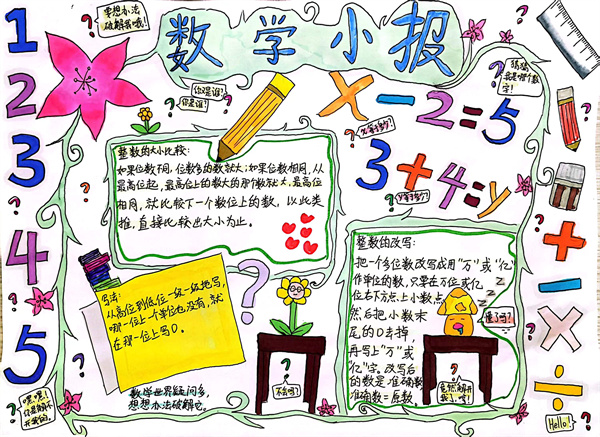 数学小报
要想办法
破解我哦!
1
2
3
4
5
你是谁?
你是谁?
猜猜
我是哪个数
字!
x-2=5
x等于多少?
3+4=y
y等于多少?
整数的大小比较:
如果位数不同,位数多的数就大;如果位数相同,从
最高位起,最高位上的数大的那个数就大,最高位
相同,就比较下一个数位上的数。以此类
推,直接比较出大小为止。
写法:
从高位到低位一级一级地写,
哪一位上一个单位也没有,就
在那一位上写0。
整数的改写:
把一个多位数改写成用"万"或"亿"
作单位的数,只要在万位或亿
位右下方点上小数点,
然后把小数末
尾的0去掉,
再写上"万"或
"亿"字。改写后
的数是准确数
准确数=原数。
z
z
z
睡了吗?
不会吗?
竟然解开
我了,哼!
数学世界疑问多,
想想办法破解它。
嘿嘿!
你是解不
开我的。
+
-
×
÷
Hello!